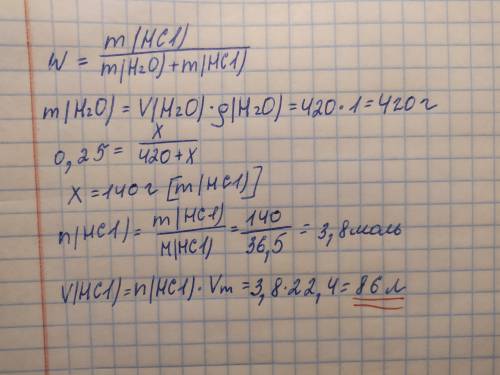 W = m(HCl) / m(H₂O)+m(HCl)
m(H₂O) = V(H₂O)·g(H₂O)=420·1=420г
0,25= x / 420+x
x=140г [m(HCl)]
n(HCl)= m(HCl) / M(HCl) = 140 / 36,5 = 3,8моль
V(HCl)=n(HCl)·Vm=3,8·22,4=86л